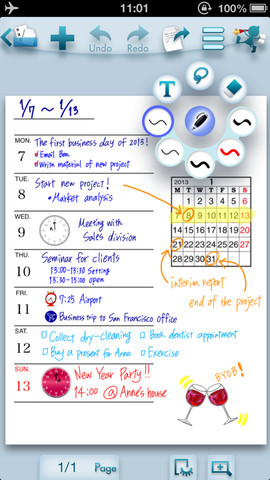 11:01
100%
Undo
Redo
T
1/7 ~ 1/13
MON.
7
The first business day of 2013!
Email Ben
Write material of new project
TUE.
8
Start new project!
• Market analysis
WED.
9
Meeting with
Sales division
THU.
10
Seminar for clients
13:00-13:30 Setting
13:30-15:00 open
FRI.
11
9:25 Airport
Business trip to San Francisco office
SAT.
12
Collect dry-cleaning
Book dentist appointment
Buy a present for Anne
Exercise
SUN.
13
New Year Party!!
14:00 @ Anne's house
2013 1
M T W T F S S
1 2 3 4 5 6
7 8 9 10 11 12 13
14 15 16 17 18 19 20
21 22 23 24 25 26 27
28 29 30 31
interim report
end of the project
BYOB!
1/1 Page